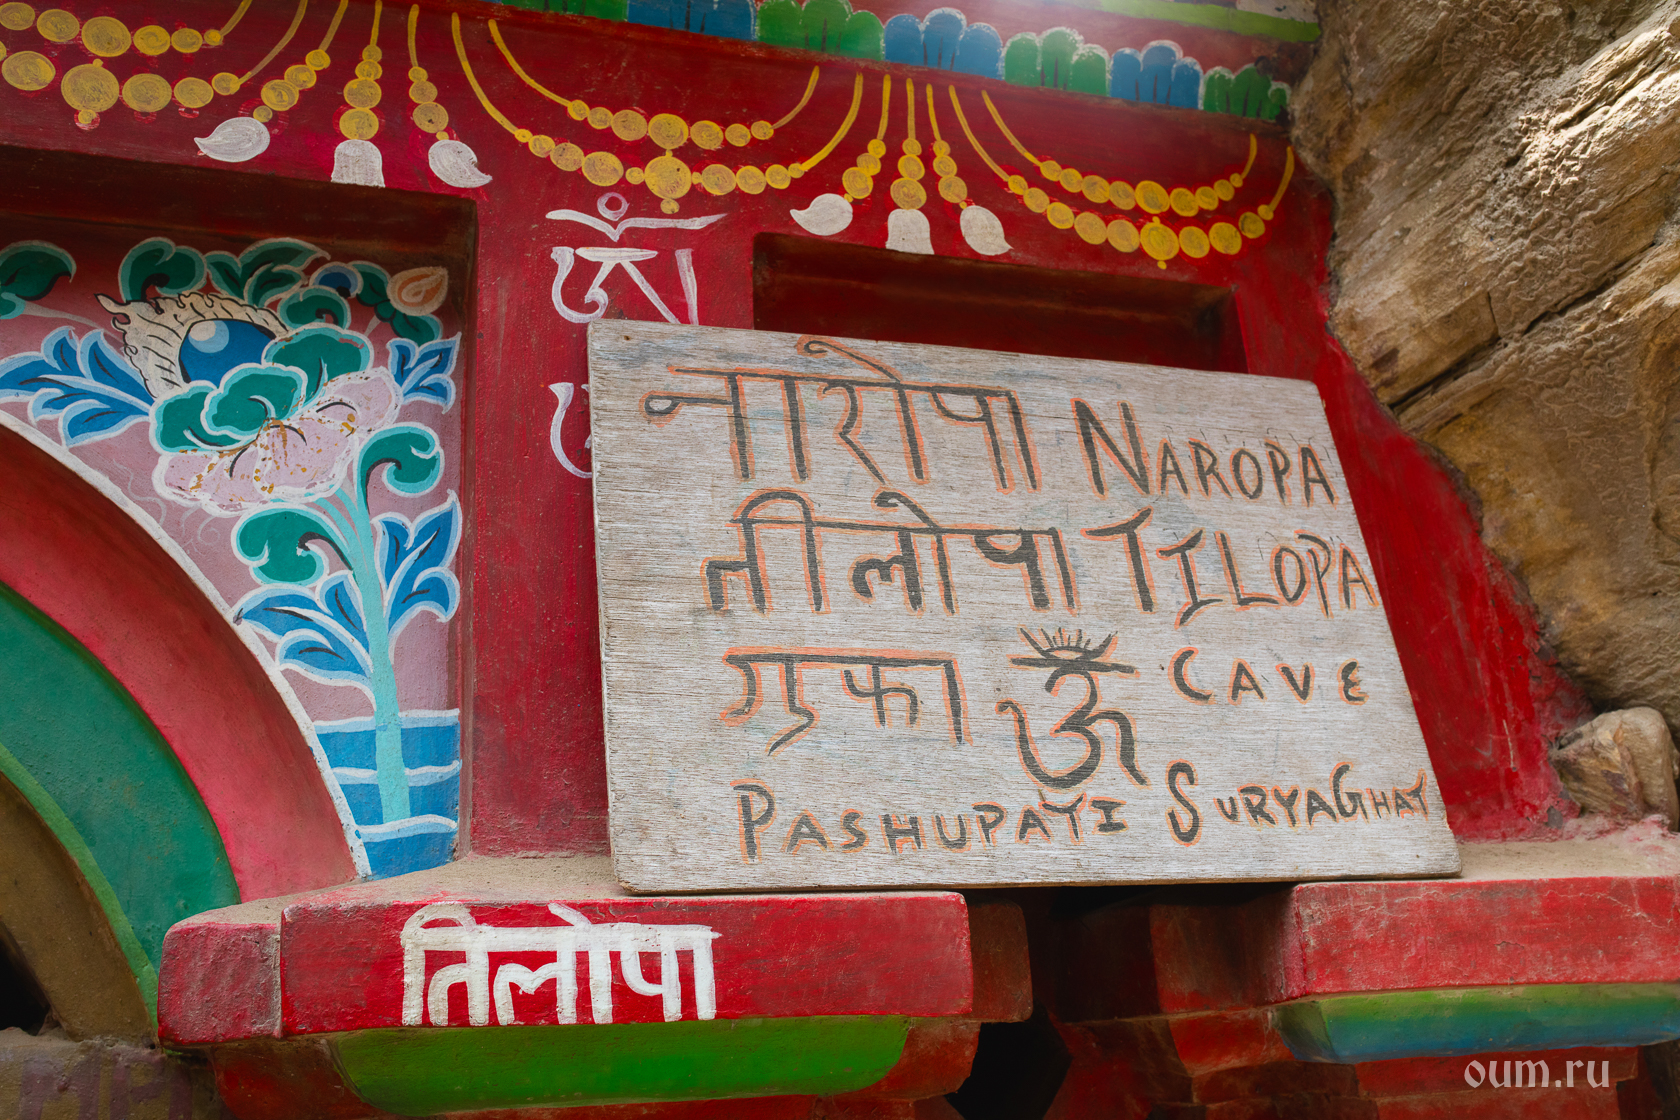 ༀ
नारोपा NAROPA
तीलोपा TILOPA
गुफा ॐ CAVE
PASHUPATI SURYAGHAT
तिलोपा
oum.ru